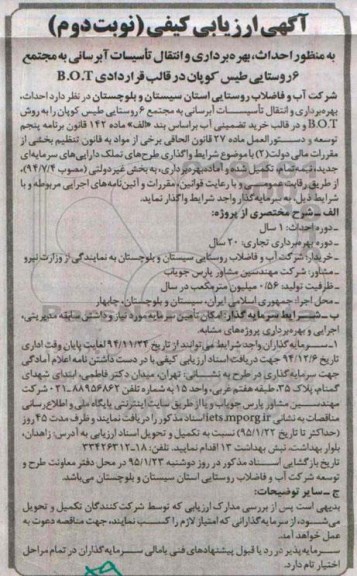 آگهی ارزیابی کیفی (نوبت دوم)
به منظور احداث، بهره‌برداری و انتقال تأسیسات آبرسانی به مجتمع
۶ روستایی طیس کوپان در قالب قراردادی B.O.T
شرکت آب و فاضلاب روستایی استان سیستان و بلوچستان در نظر دارد احداث،
بهره‌برداری و انتقال تأسیسات آبرسانی به مجتمع ۶ روستایی طیس کوپان را به روش
B.O.T و در قالب خرید تضمینی آب براساس بند «الف» ماده ۱۴۲ قانون برنامه پنجم
توسعه و دستورالعمل ماده ۲۷ قانون الحاقی برخی از مواد به قانون تنظیم بخشی از
مقررات مالی دولت (۲) با موضوع شرایط واگذاری طرح‌های تملک دارایی‌های سرمایه‌ای
جدید، نیمه‌تمام، تکمیل شده و آماده بهره‌برداری، به بخش غیردولتی (مصوب ۹۴/۷/۴)
از طریق رقابت عمومی و با رعایت قوانین، مقررات و آئین‌نامه‌های اجرایی مربوطه و با
شرایط ذیل، به سرمایه‌گذار واجد شرایط واگذار نماید.
الف ـ شرح مختصری از پروژه:
ـ دوره احداث: ۱ سال
ـ دوره بهره‌برداری تجاری: ۲۰ سال
ـ خریدار: شرکت آب و فاضلاب روستایی سیستان و بلوچستان به نمایندگی از وزارت نیرو
ـ مشاور: شرکت مهندسین مشاور پارس جویاب
ـ ظرفیت تولید: ۰/۵۶ میلیون مترمکعب در سال
ـ محل اجرا: جمهوری اسلامی ایران، سیستان و بلوچستان، چابهار
ب ـ شرایط سرمایه گذار: امکان تأمین سرمایه مورد نیاز و داشتن سابقه مدیریتی،
اجرایی و بهره‌برداری پروژه‌های مشابه.
۱ـ سرمایه‌گذاران واجد شرایط می‌توانند از تاریخ ۹۴/۱۱/۲۴ لغایت پایان وقت اداری
تاریخ ۹۴/۱۲/۶ جهت دریافت اسناد ارزیابی کیفی با در دست داشتن نامه اعلام آمادگی
جهت سرمایه‌گذاری در طرح به نشانی: تهران، میدان دکتر فاطمی، ابتدای شهدای
گمنام، پلاک ۳۵، طبقه هفتم غربی، واحد ۱۵ به شماره تلفن ۸۸۹۵۶۸۶۲-۰۲۱ شرکت
مهندسین مشاور پارس جویاب و یا از طریق سایت اینترنتی پایگاه ملی و اطلاع رسانی
مناقصات به نشانی iets.mporg.ir اسناد مذکور را دریافت نمایند و ظرف مدت ۴۵ روز
(حداکثر تا تاریخ ۹۵/۱/۲۲) نسبت به تکمیل و تحویل اسناد ارزیابی به آدرس: زاهدان،
بلوار بهداشت، نبش بهداشت ۱۳ اقدام نمایند. تلفن: ۱۸-۳۳۴۲۶۳۱۲
تاریخ بازگشایی اسناد مذکور در روز دوشنبه ۹۵/۱/۲۳ در محل دفتر معاونت طرح و
توسعه شرکت آب و فاضلاب روستایی استان سیستان و بلوچستان می‌باشد.
ج ـ سایر توضیحات:
بدیهی است پس از بررسی مدارک ارزیابی که توسط شرکت کنندگان تکمیل و تحویل
می‌شود، از سرمایه‌گذارانی که امتیاز لازم را کسب نمایند، جهت مناقصه دعوت به
عمل خواهد آمد.
سرمایه‌پذیر در رد یا قبول پیشنهادهای فنی یا مالی سرمایه‌گذاران در تمام مراحل
اختیار تام دارد.